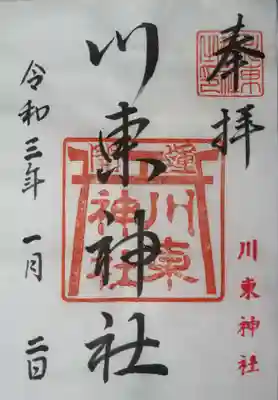 奉拝
川東神社
川東神社
川東
神社
令和三年一月二日